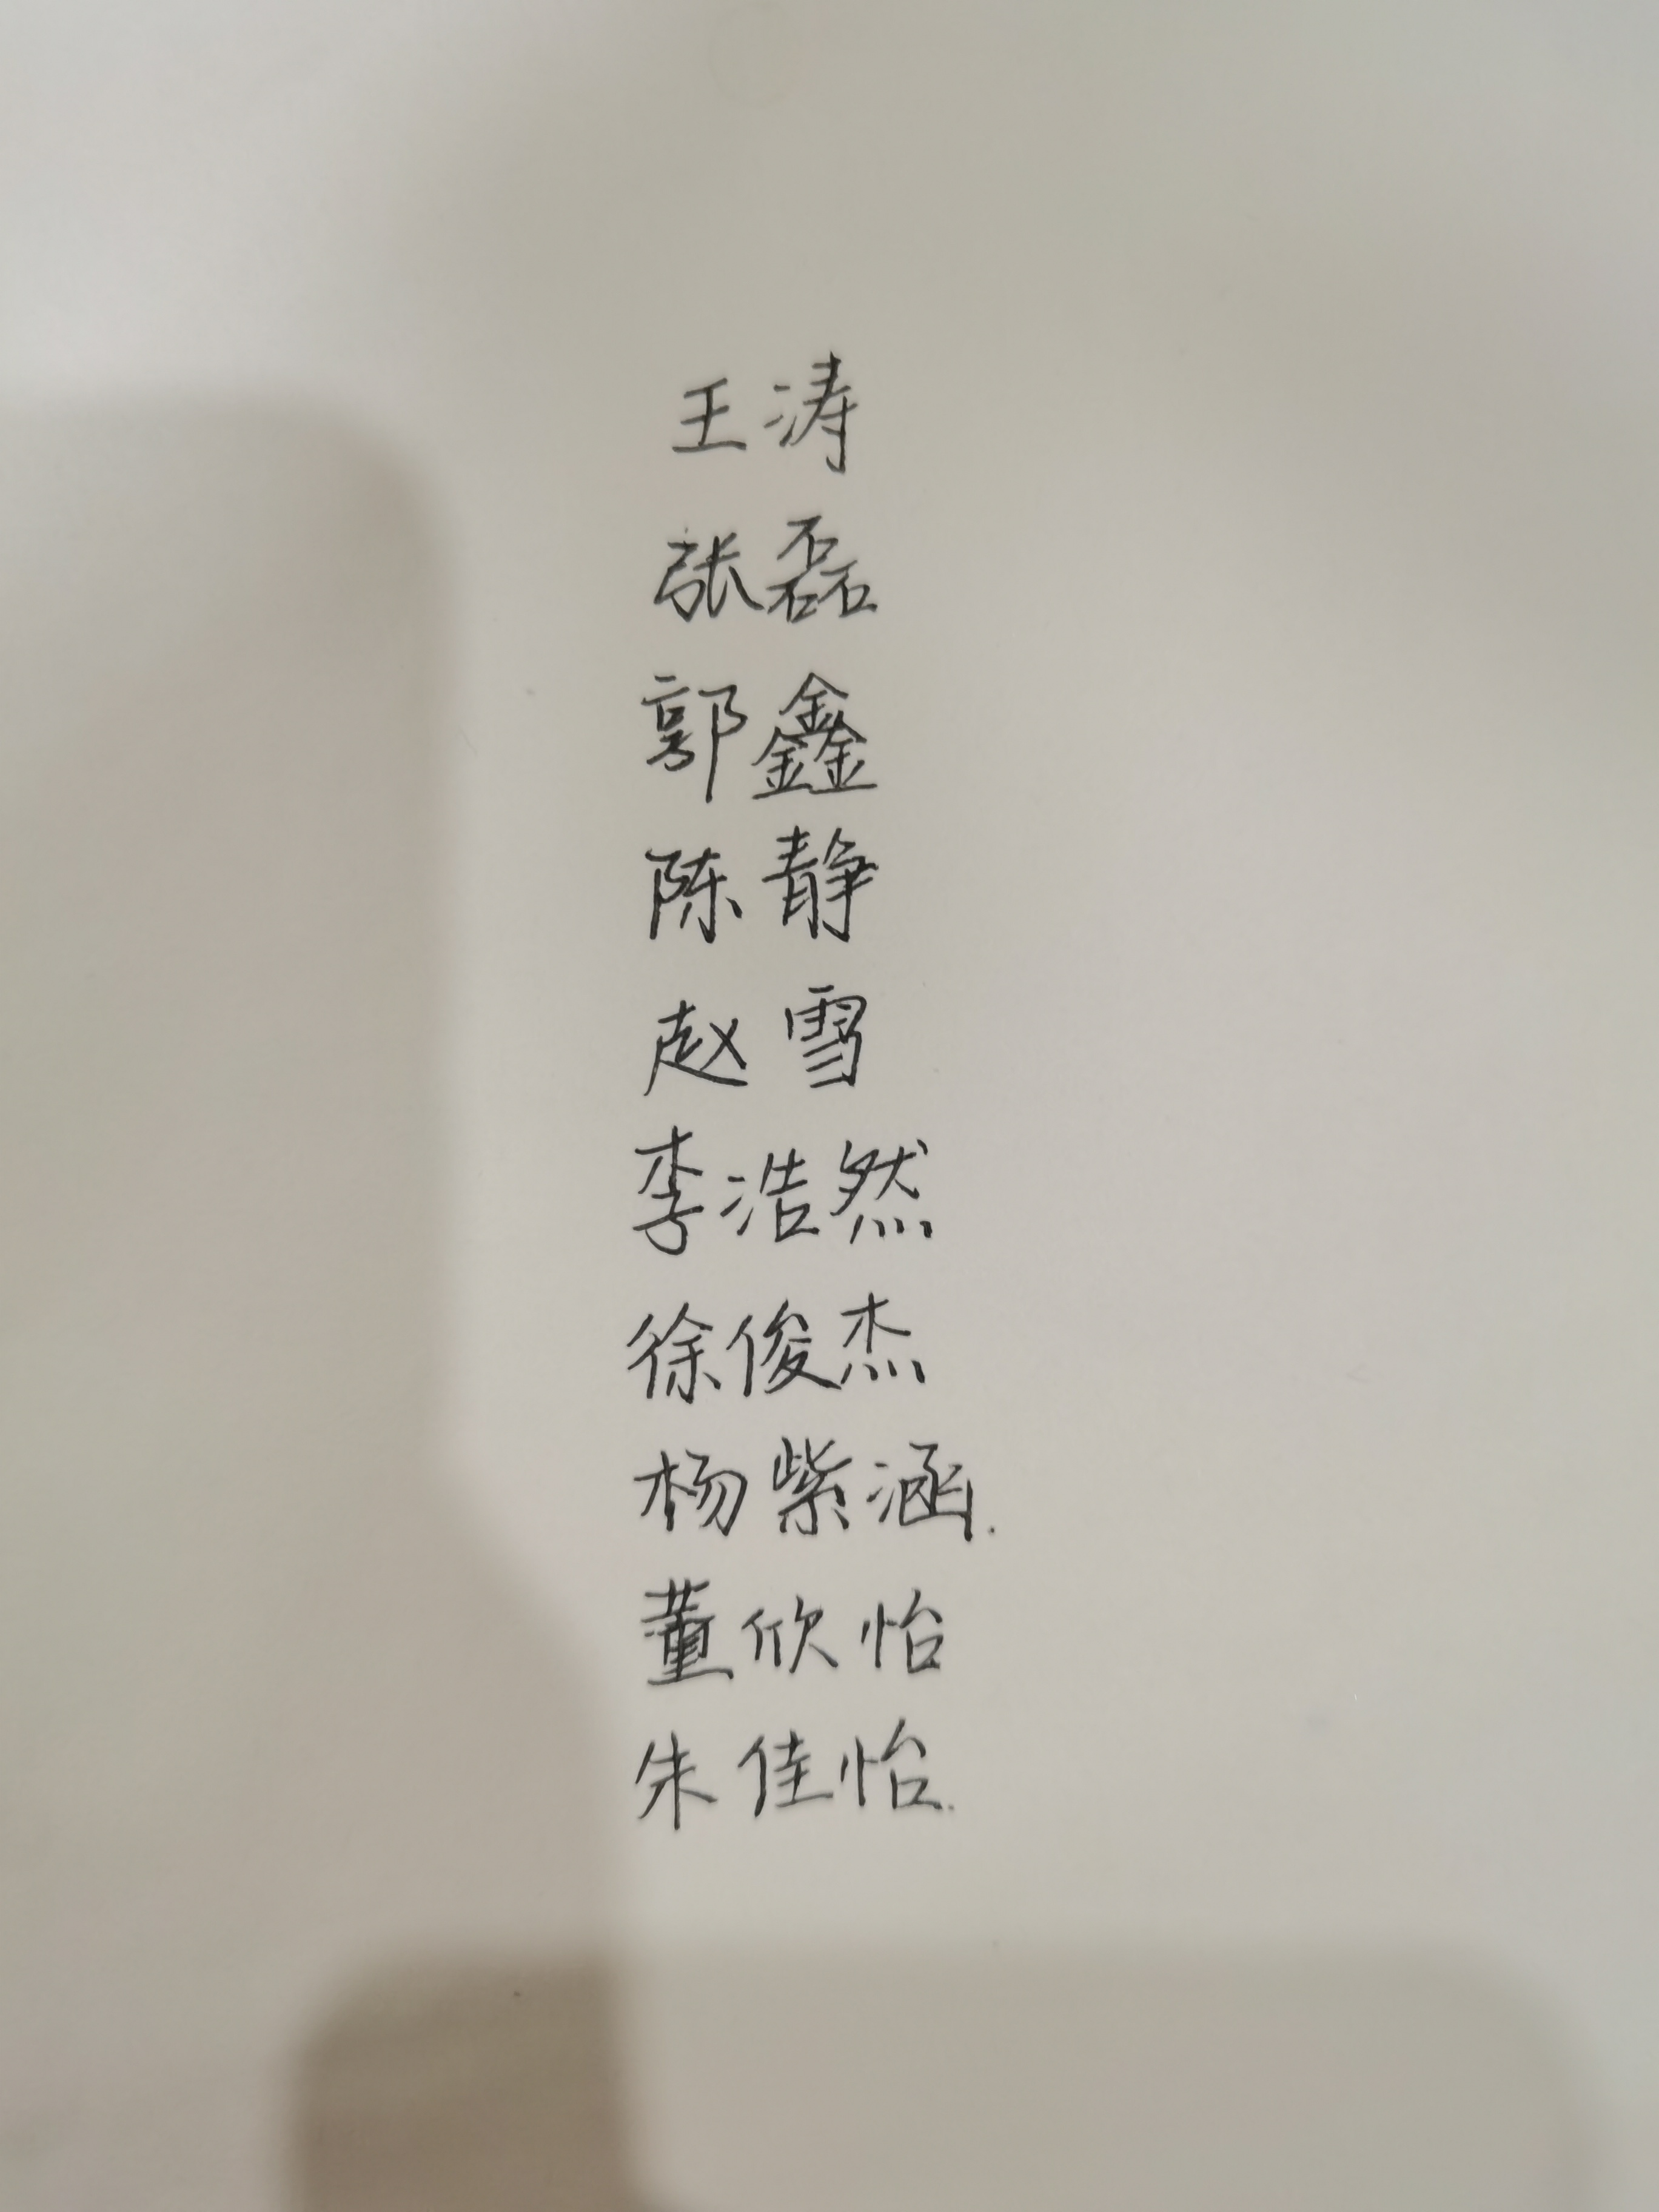 王涛
张磊
郭鑫
陈静
赵雪
李浩然
徐俊杰
杨紫涵.
董欣怡
朱佳怡.